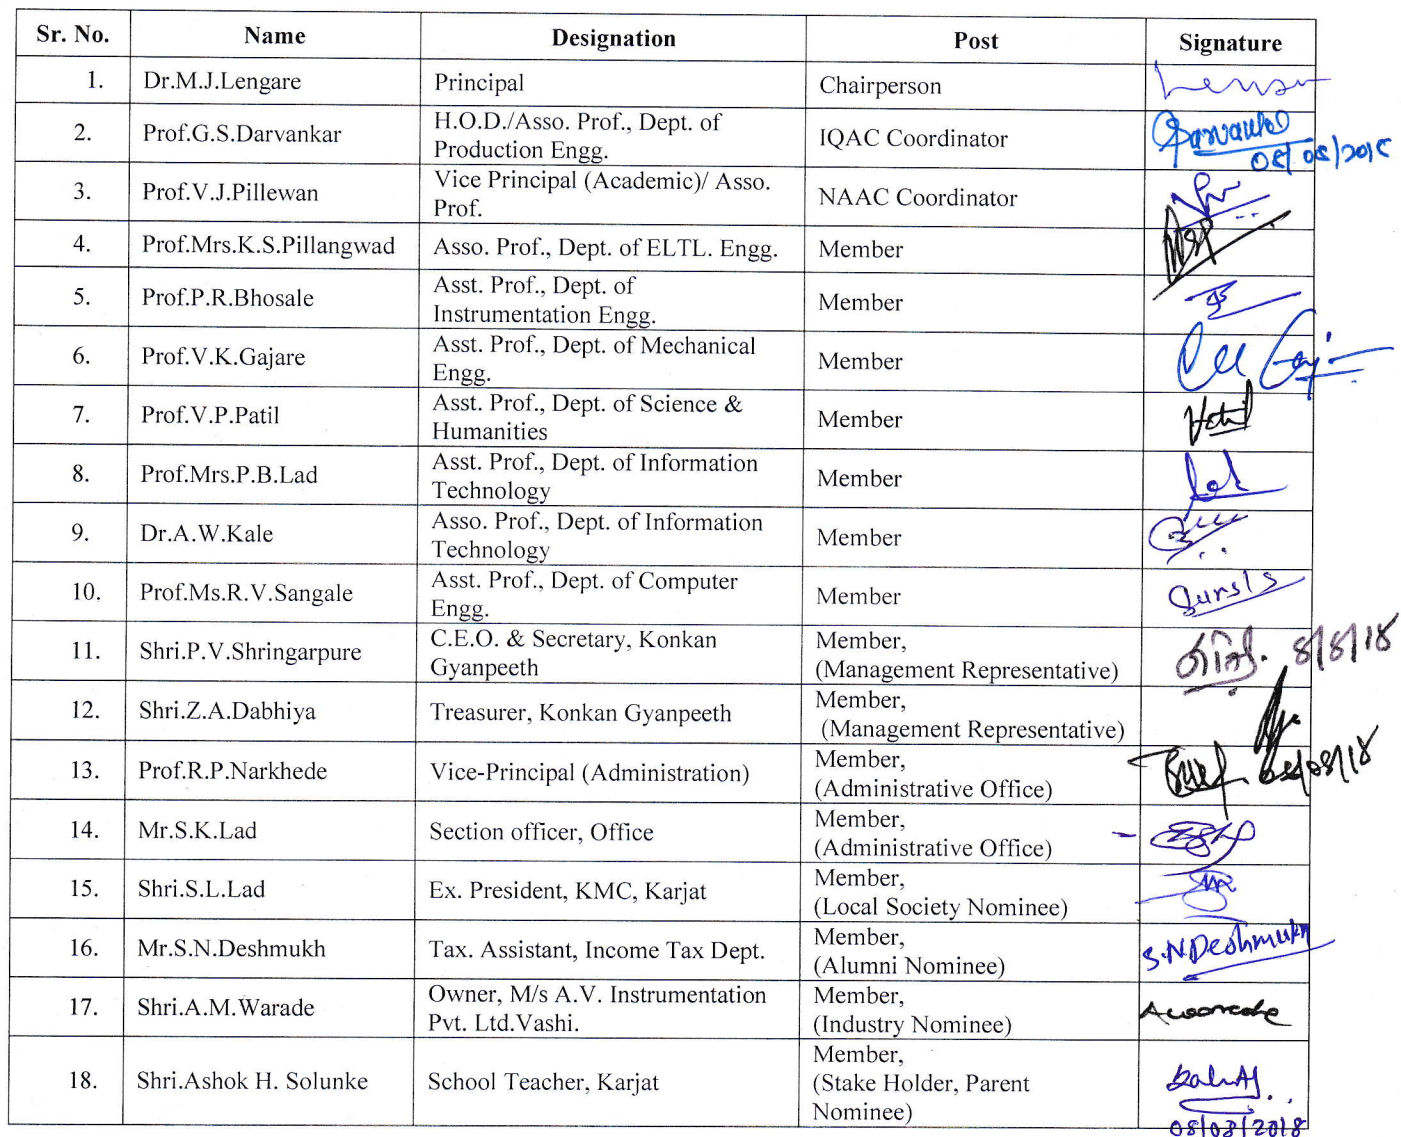 Sr. No. Name Designation Post Signature
1. Dr.M.J.Lengare Principal Chairperson
2. Prof.G.S.Darvankar H.O.D./Asso. Prof., Dept. of
Production Engg. IQAC Coordinator
08/08/2018
3. Prof.V.J.Pillewan Vice Principal (Academic)/ Asso.
Prof. NAAC Coordinator
4. Prof.Mrs.K.S.Pillangwad Asso. Prof., Dept. of ELTL. Engg. Member
5. Prof.P.R.Bhosale Asst. Prof., Dept. of
Instrumentation Engg. Member
6. Prof.V.K.Gajare Asst. Prof., Dept. of Mechanical
Engg. Member
7. Prof.V.P.Patil Asst. Prof., Dept. of Science &
Humanities Member
8. Prof.Mrs.P.B.Lad Asst. Prof., Dept. of Information
Technology Member
9. Dr.A.W.Kale Asso. Prof., Dept. of Information
Technology Member
10. Prof.Ms.R.V.Sangale Asst. Prof., Dept. of Computer
Engg. Member
11. Shri.P.V.Shringarpure C.E.O. & Secretary, Konkan
Gyanpeeth Member,
(Management Representative) 8/8/18
12. Shri.Z.A.Dabhiya Treasurer, Konkan Gyanpeeth Member,
(Management Representative)
13. Prof.R.P.Narkhede Vice-Principal (Administration) Member,
(Administrative Office) 08/08/18
14. Mr.S.K.Lad Section officer, Office Member,
(Administrative Office)
15. Shri.S.L.Lad Ex. President, KMC, Karjat Member,
(Local Society Nominee)
16. Mr.S.N.Deshmukh Tax. Assistant, Income Tax Dept. Member,
(Alumni Nominee) S.N Deshmukh
17. Shri.A.M.Warade Owner, M/s A.V. Instrumentation
Pvt. Ltd.Vashi. Member,
(Industry Nominee)
18. Shri.Ashok H. Solunke School Teacher, Karjat Member,
(Stake Holder, Parent
Nominee)
08/08/2018